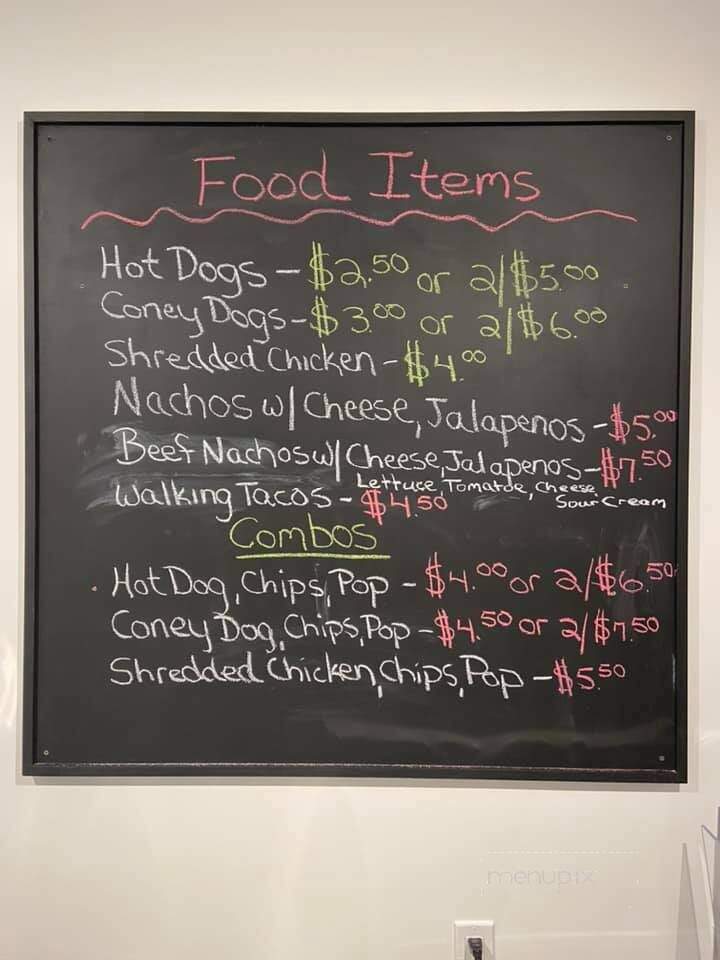 Food Items
Hot Dogs - $2.50 or 2/$5.00
Coney Dogs - $3.00 or 2/$6.00
Shredded Chicken - $4.00
Nachos w/ Cheese, Jalapenos - $5.00
Beef Nachos w/ Cheese, Jalapenos - $7.50
Lettuce, Tomatoe, Cheese,
Walking Tacos - $4.50 Sour Cream
Combos
Hot Dog, Chips, Pop - $4.00 or 2/$6.50
Coney Dog, Chips, Pop - $4.50 or 2/$7.50
Shredded Chicken, Chips, Pop - $5.50
menupix